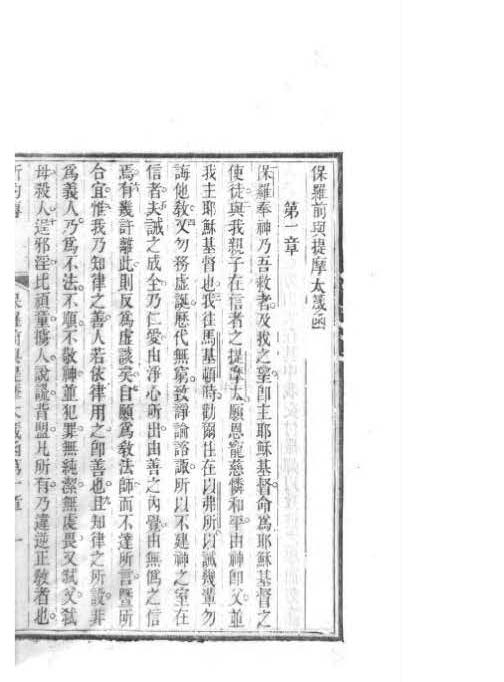 保羅前與提摩太箴函
第一章
保羅奉神乃吾救者及我之望卽主耶穌基督命爲耶穌基督之
使徒與我親子在信者之提摩太願恩寵慈憐和平由神卽父並
我主耶穌基督也我往馬基頓時勸爾住在以弗所以誡幾輩勿
誨他教又勿務虛誕歷代無窮致諍論諮諏所以不建神之室在
信者夫誡之成全乃仁愛由淨心所出由善之內覺由無僞之信
焉有幾許離此則反爲虛談矣自願爲教法師而不達所言暨所
合宜惟我乃知律之善人若依律用之卽善也且知律之所設非
爲義人乃爲不法不順不敬神並犯罪無純潔無處畏又弒父弒
母殺人逞邪淫比頑童擄人說謊背盟凡所有乃違逆正教者也